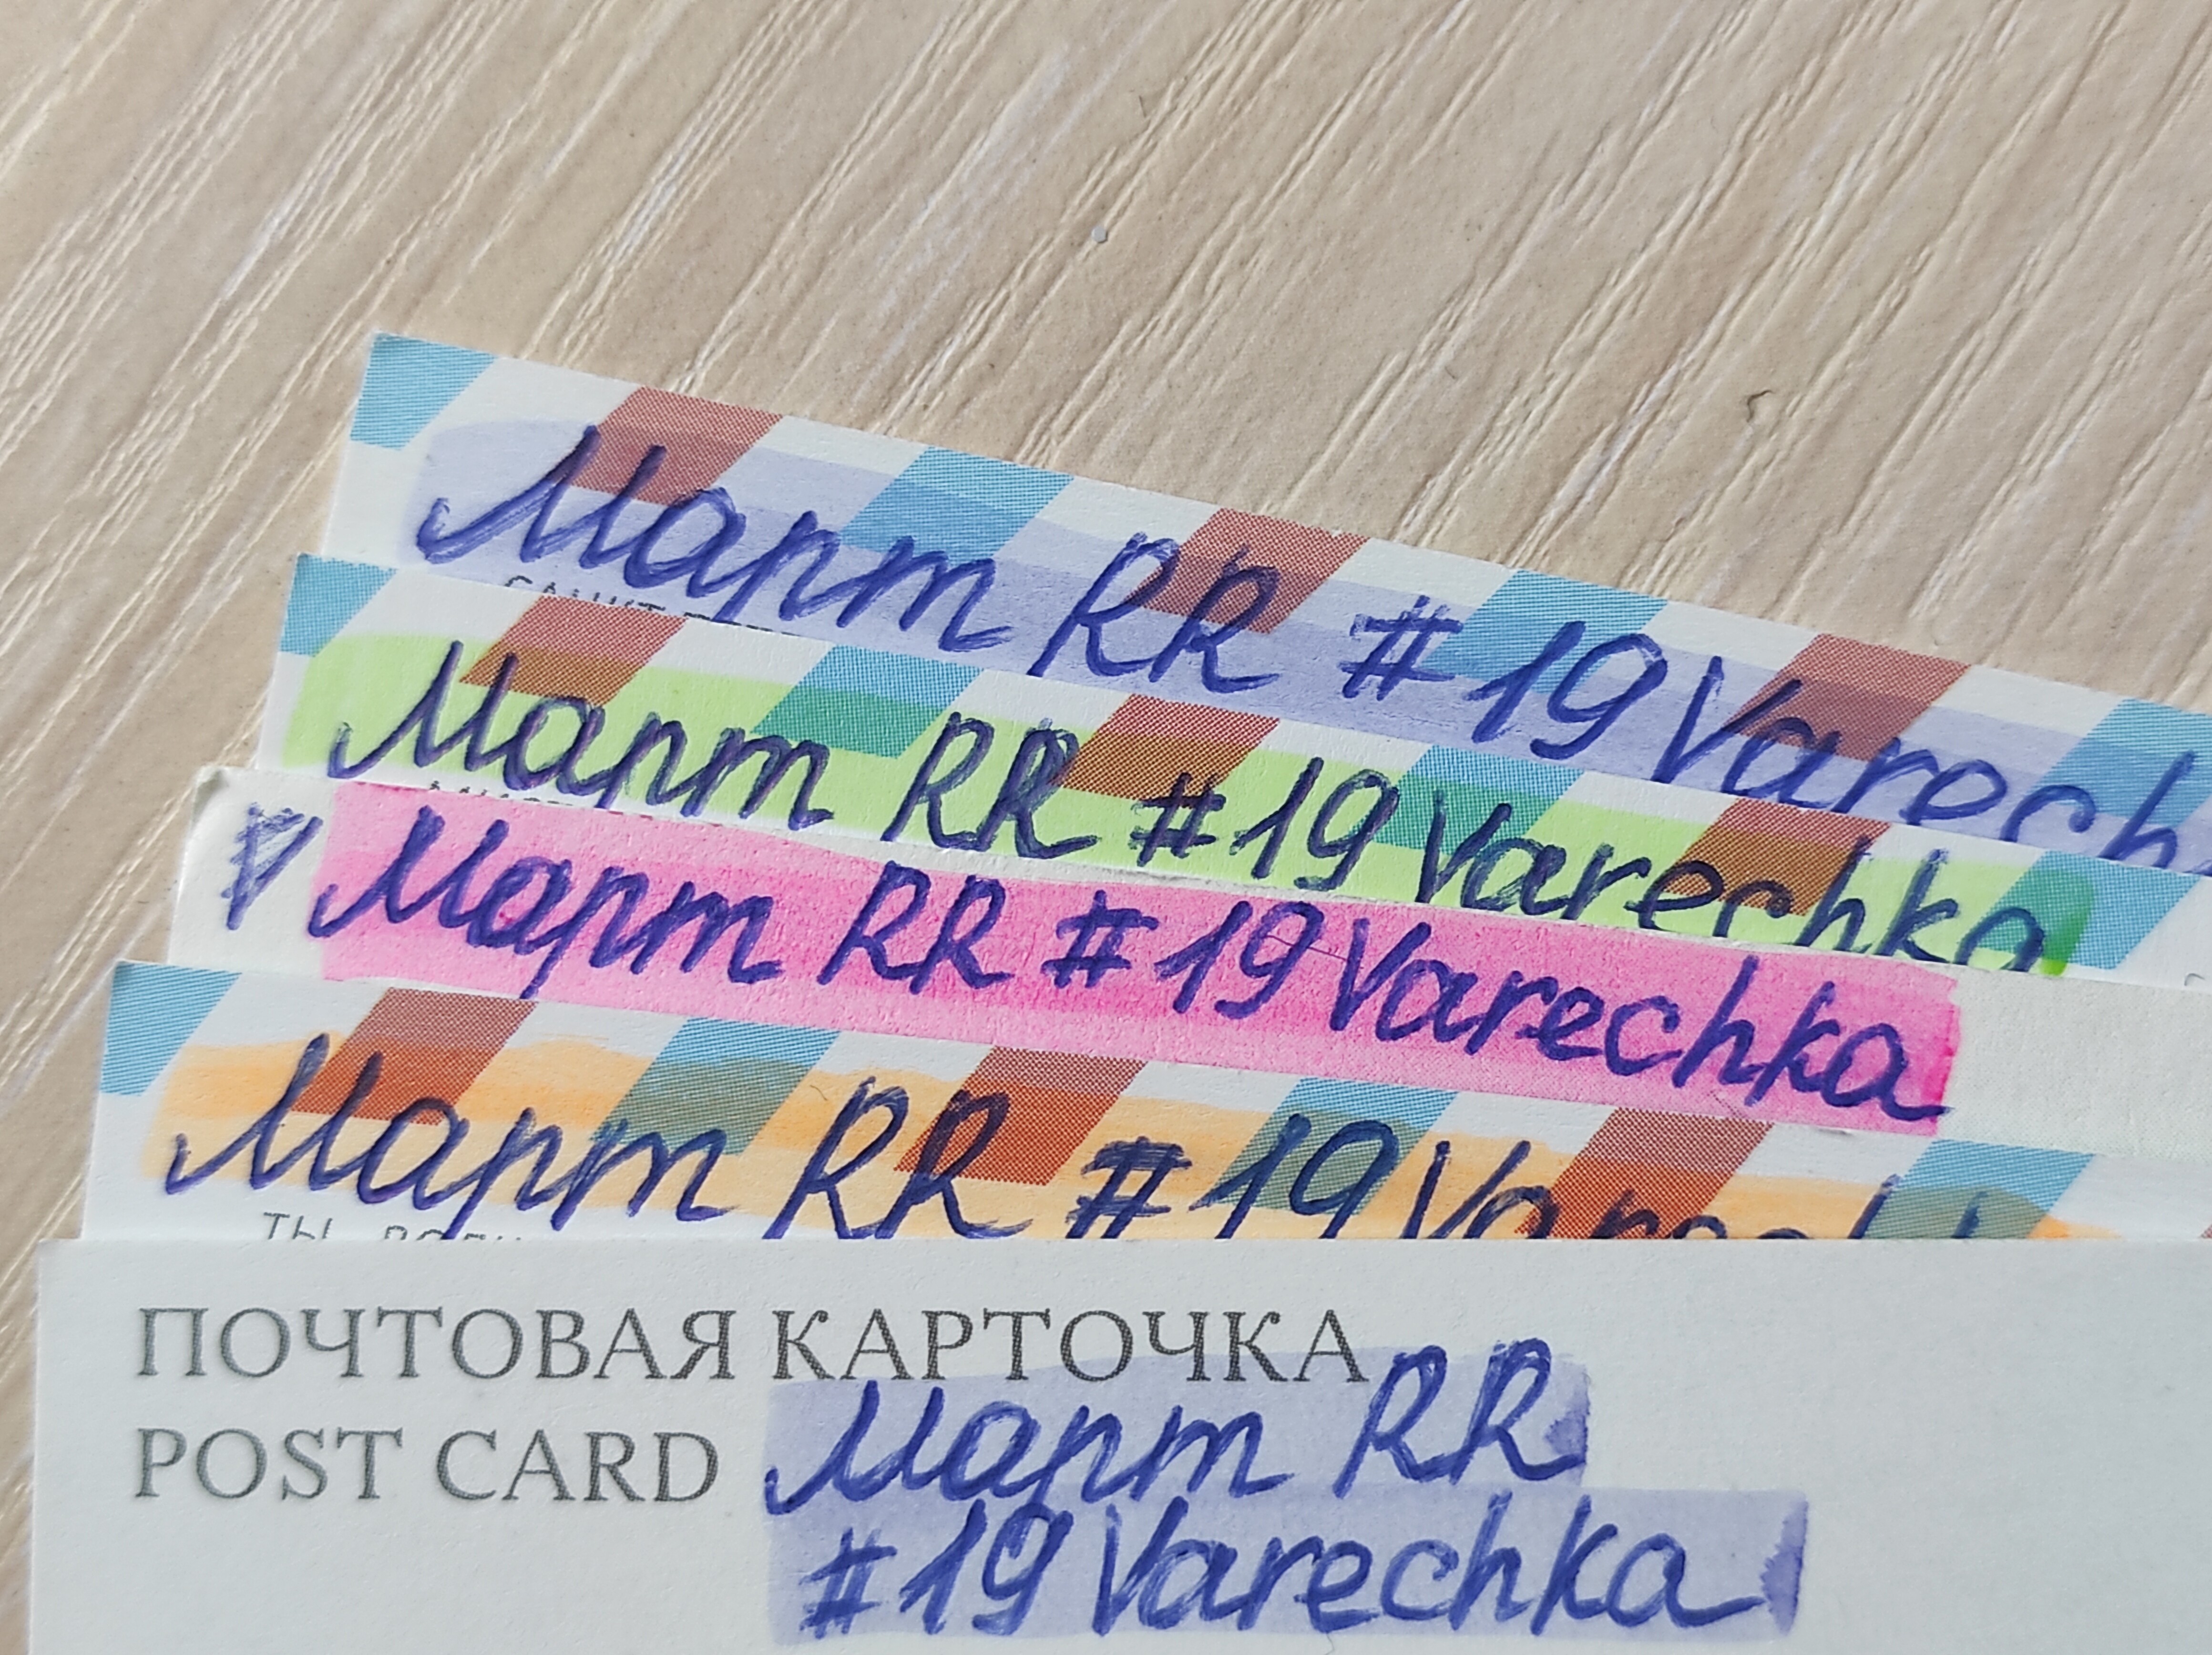 Март RR #19 Varech
Март RR #19 Varechka
Март RR #19 Varechka
Март RR #19
ПОЧТОВАЯ КАРТОЧКА
POST CARD Март RR
#19 Varechka